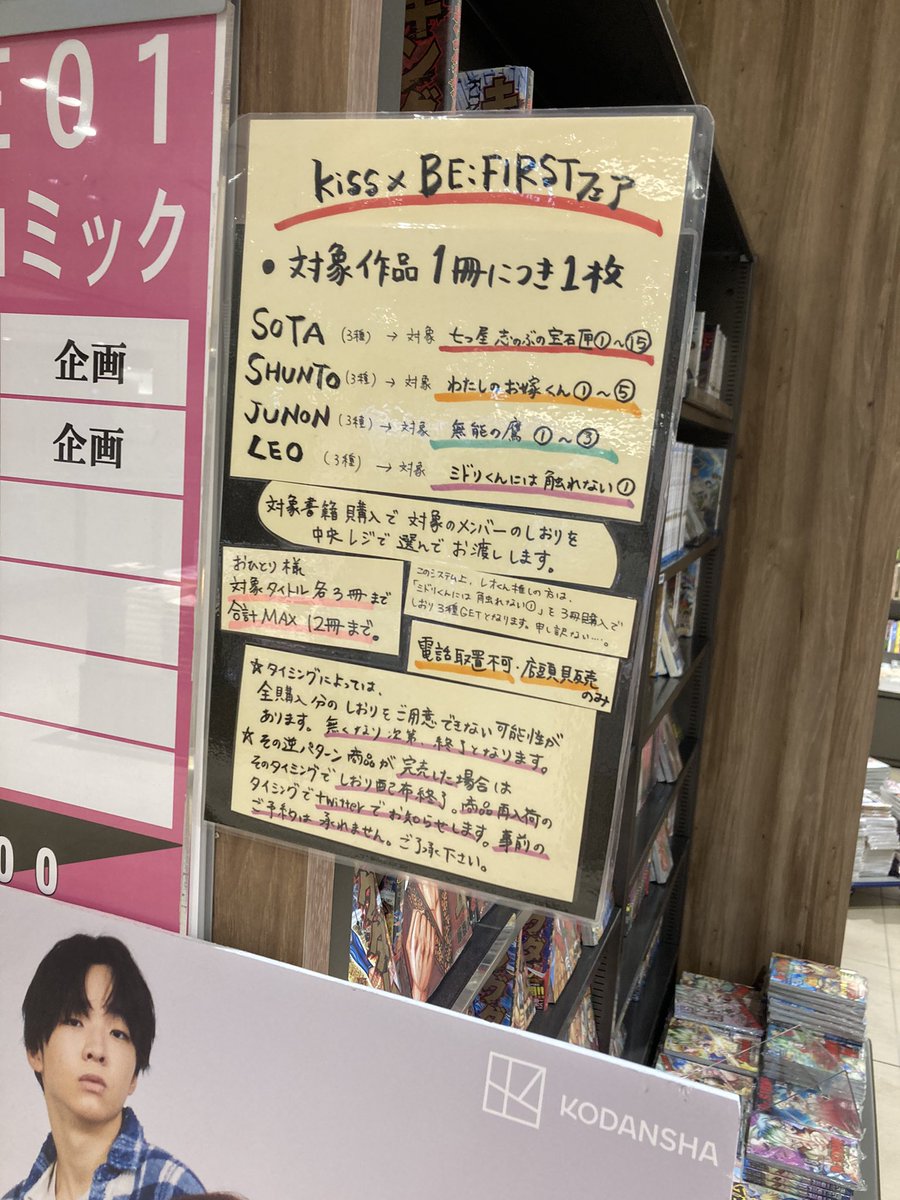 E01
コミック
企画
企画
00
kiss×BE:FIRSTフェア
・対象作品1冊につき1枚
SOTA (3種) → 対象 七つ屋志のぶの宝石匣①〜⑮
SHUNTO (3種) → 対象 わたしのお嫁くん①〜⑤
JUNON (3種) → 対象 無能の鷹 ①〜③
LEO (3種) → 対象 ミドリくんには触れない①
対象書籍購入で対象のメンバーのしおりを
中央レジで選んでお渡しします。
おひとり様
対象タイトル各3冊まで
合計MAX 12冊まで。
このシステム上、レオくん推しの方は、
「ミドリくんには触れない①」を3冊購入で
しおり3種GETとなります。申し訳ない….
電話取置不可・店頭販売
のみ
☆タイミングによっては、
全購入分のしおりをご用意できない可能性が
あります。無くなり次第、終了となります。
☆その逆パターン商品が完売した場合は
そのタイミングでしおり配布終了。商品再入荷の
タイミングでtwitterでお知らせします。事前の
ご予約は承れません。ご了承下さい。
KODANSHA